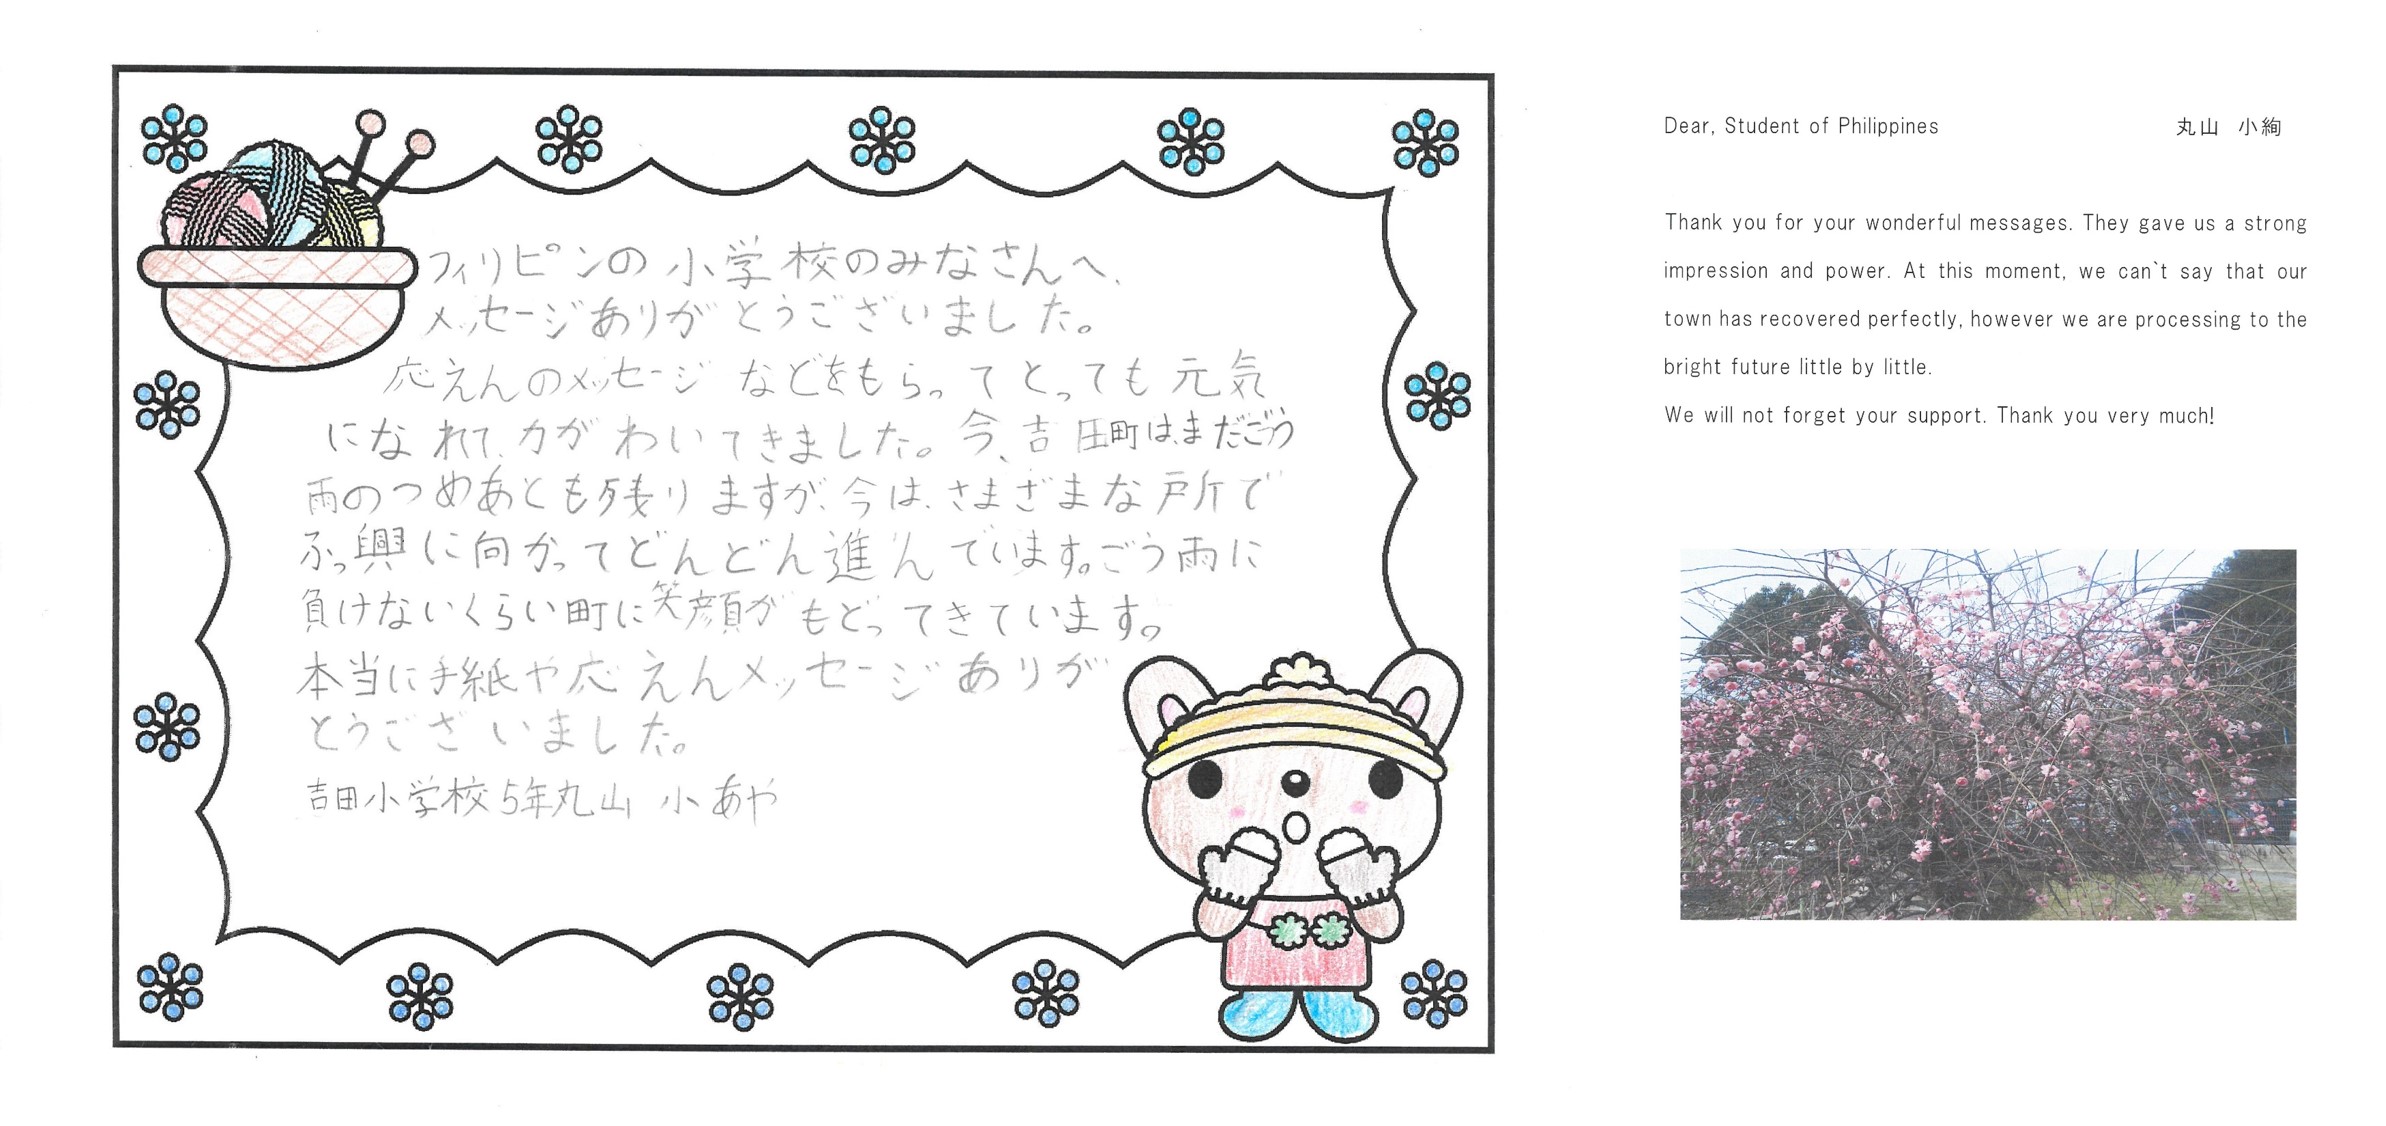 フィリピンの小学校のみなさんへ、
メッセージありがとうございました。
応えんのメッセージなどをもらってとっても元気
になれて、力がわいてきました。今、吉田町は、まだごう
雨のつめあとも残りますが、今は、さまざまな所で
ふっ興に向かってどんどん進んでいます。ごう雨に
負けないくらい町に笑顔がもどってきています。
本当に手紙や応えんメッセージありが
とうございました。
吉田小学校5年丸山 小あや
Dear, Student of Philippines 丸山 小絢
Thank you for your wonderful messages. They gave us a strong
impression and power. At this moment, we can`t say that our
town has recovered perfectly, however we are processing to the
bright future little by little.
We will not forget your support. Thank you very much!